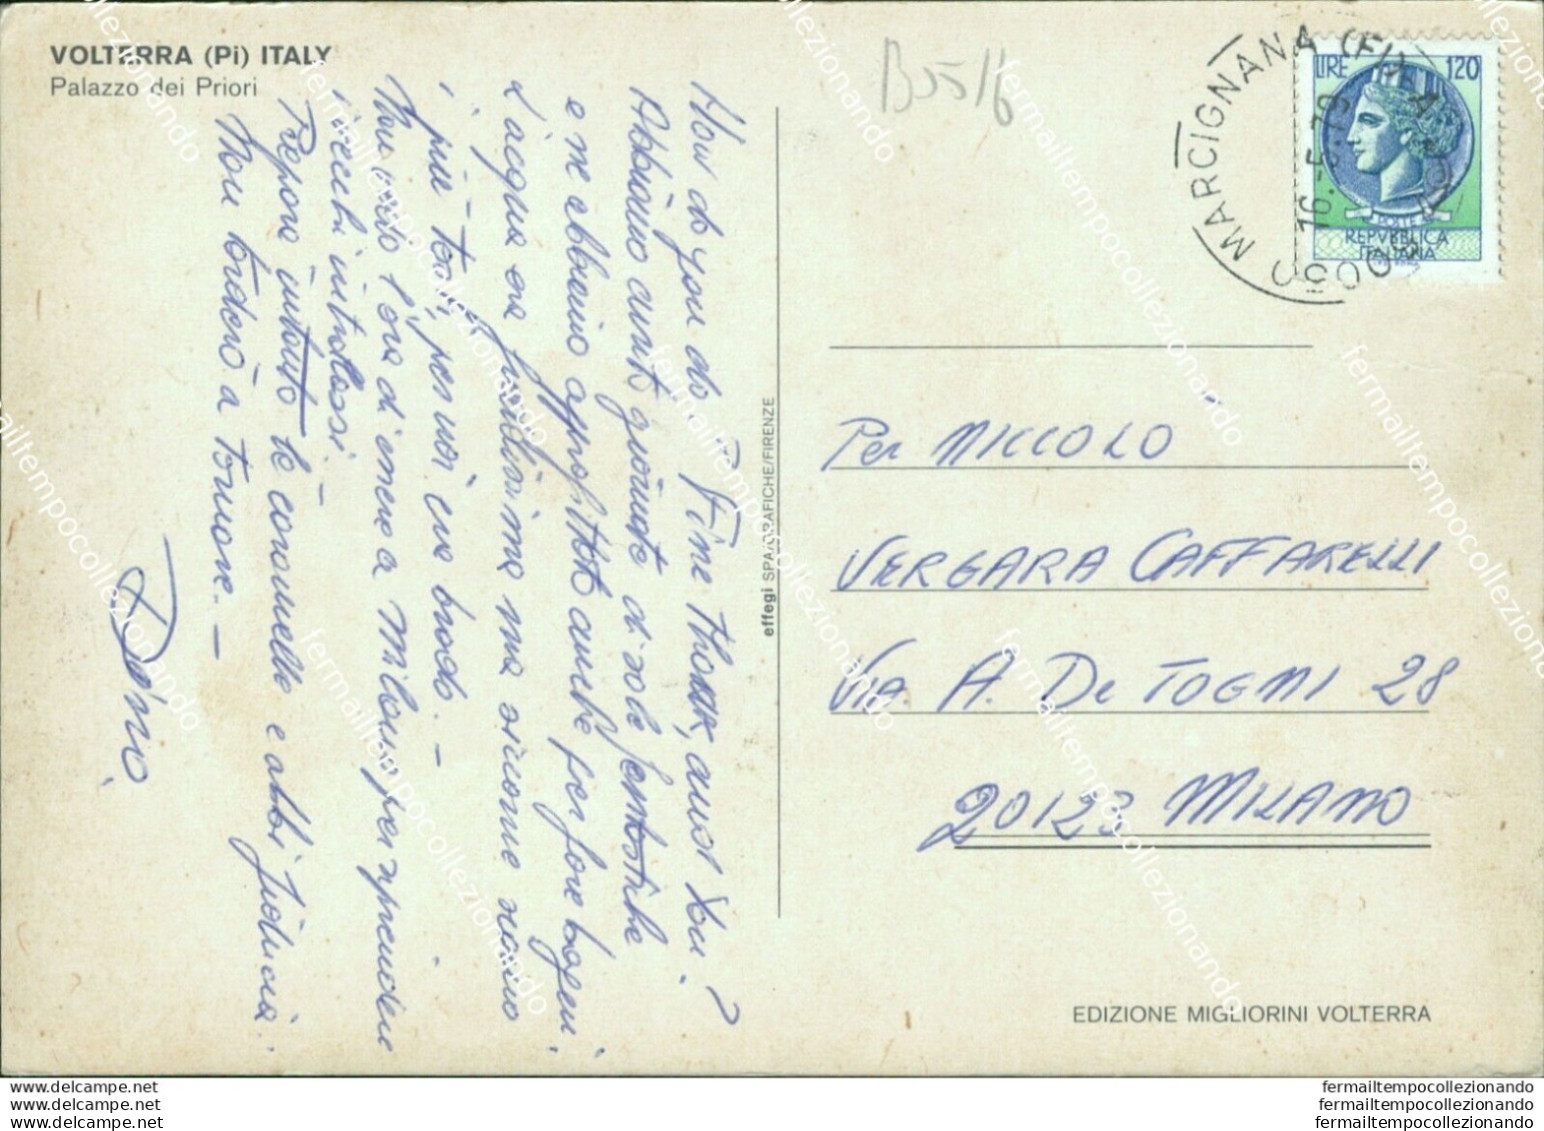 VOLTERRA (Pi) ITALY
Palazzo dei Priori
B5516
50050 MARCIGNANA (FI)
16.-5.79
LIRE 120
REPVBBLICA
ITALIANA
How do you do? Fine Thank, and You?
Abbiamo avuto giornate di sole fantastiche
e ne abbiamo approfittato anche per fare bagni.
L'acqua era freddissima ma siccome siamo
i più forti, per noi era brodo. -
Non vedo l'ora di essere a Milano per riprendere
i vecchi
Prepara intanto le e abbi fiducia.
Non tarderò a tornare. -
Dario
effegi SPA/GRAFICHE/FIRENZE
Per NICCOLO
VERGARA CAFFARELLI
VIA A. DE TOGNI 28
20123 MILANO
EDIZIONE MIGLIORINI VOLTERRA
www.delcampe.net
www.delcampe.net
www.delcampe.net
fermailtempocollezionando
fermailtempocollezionando
fermailtempocollezionando